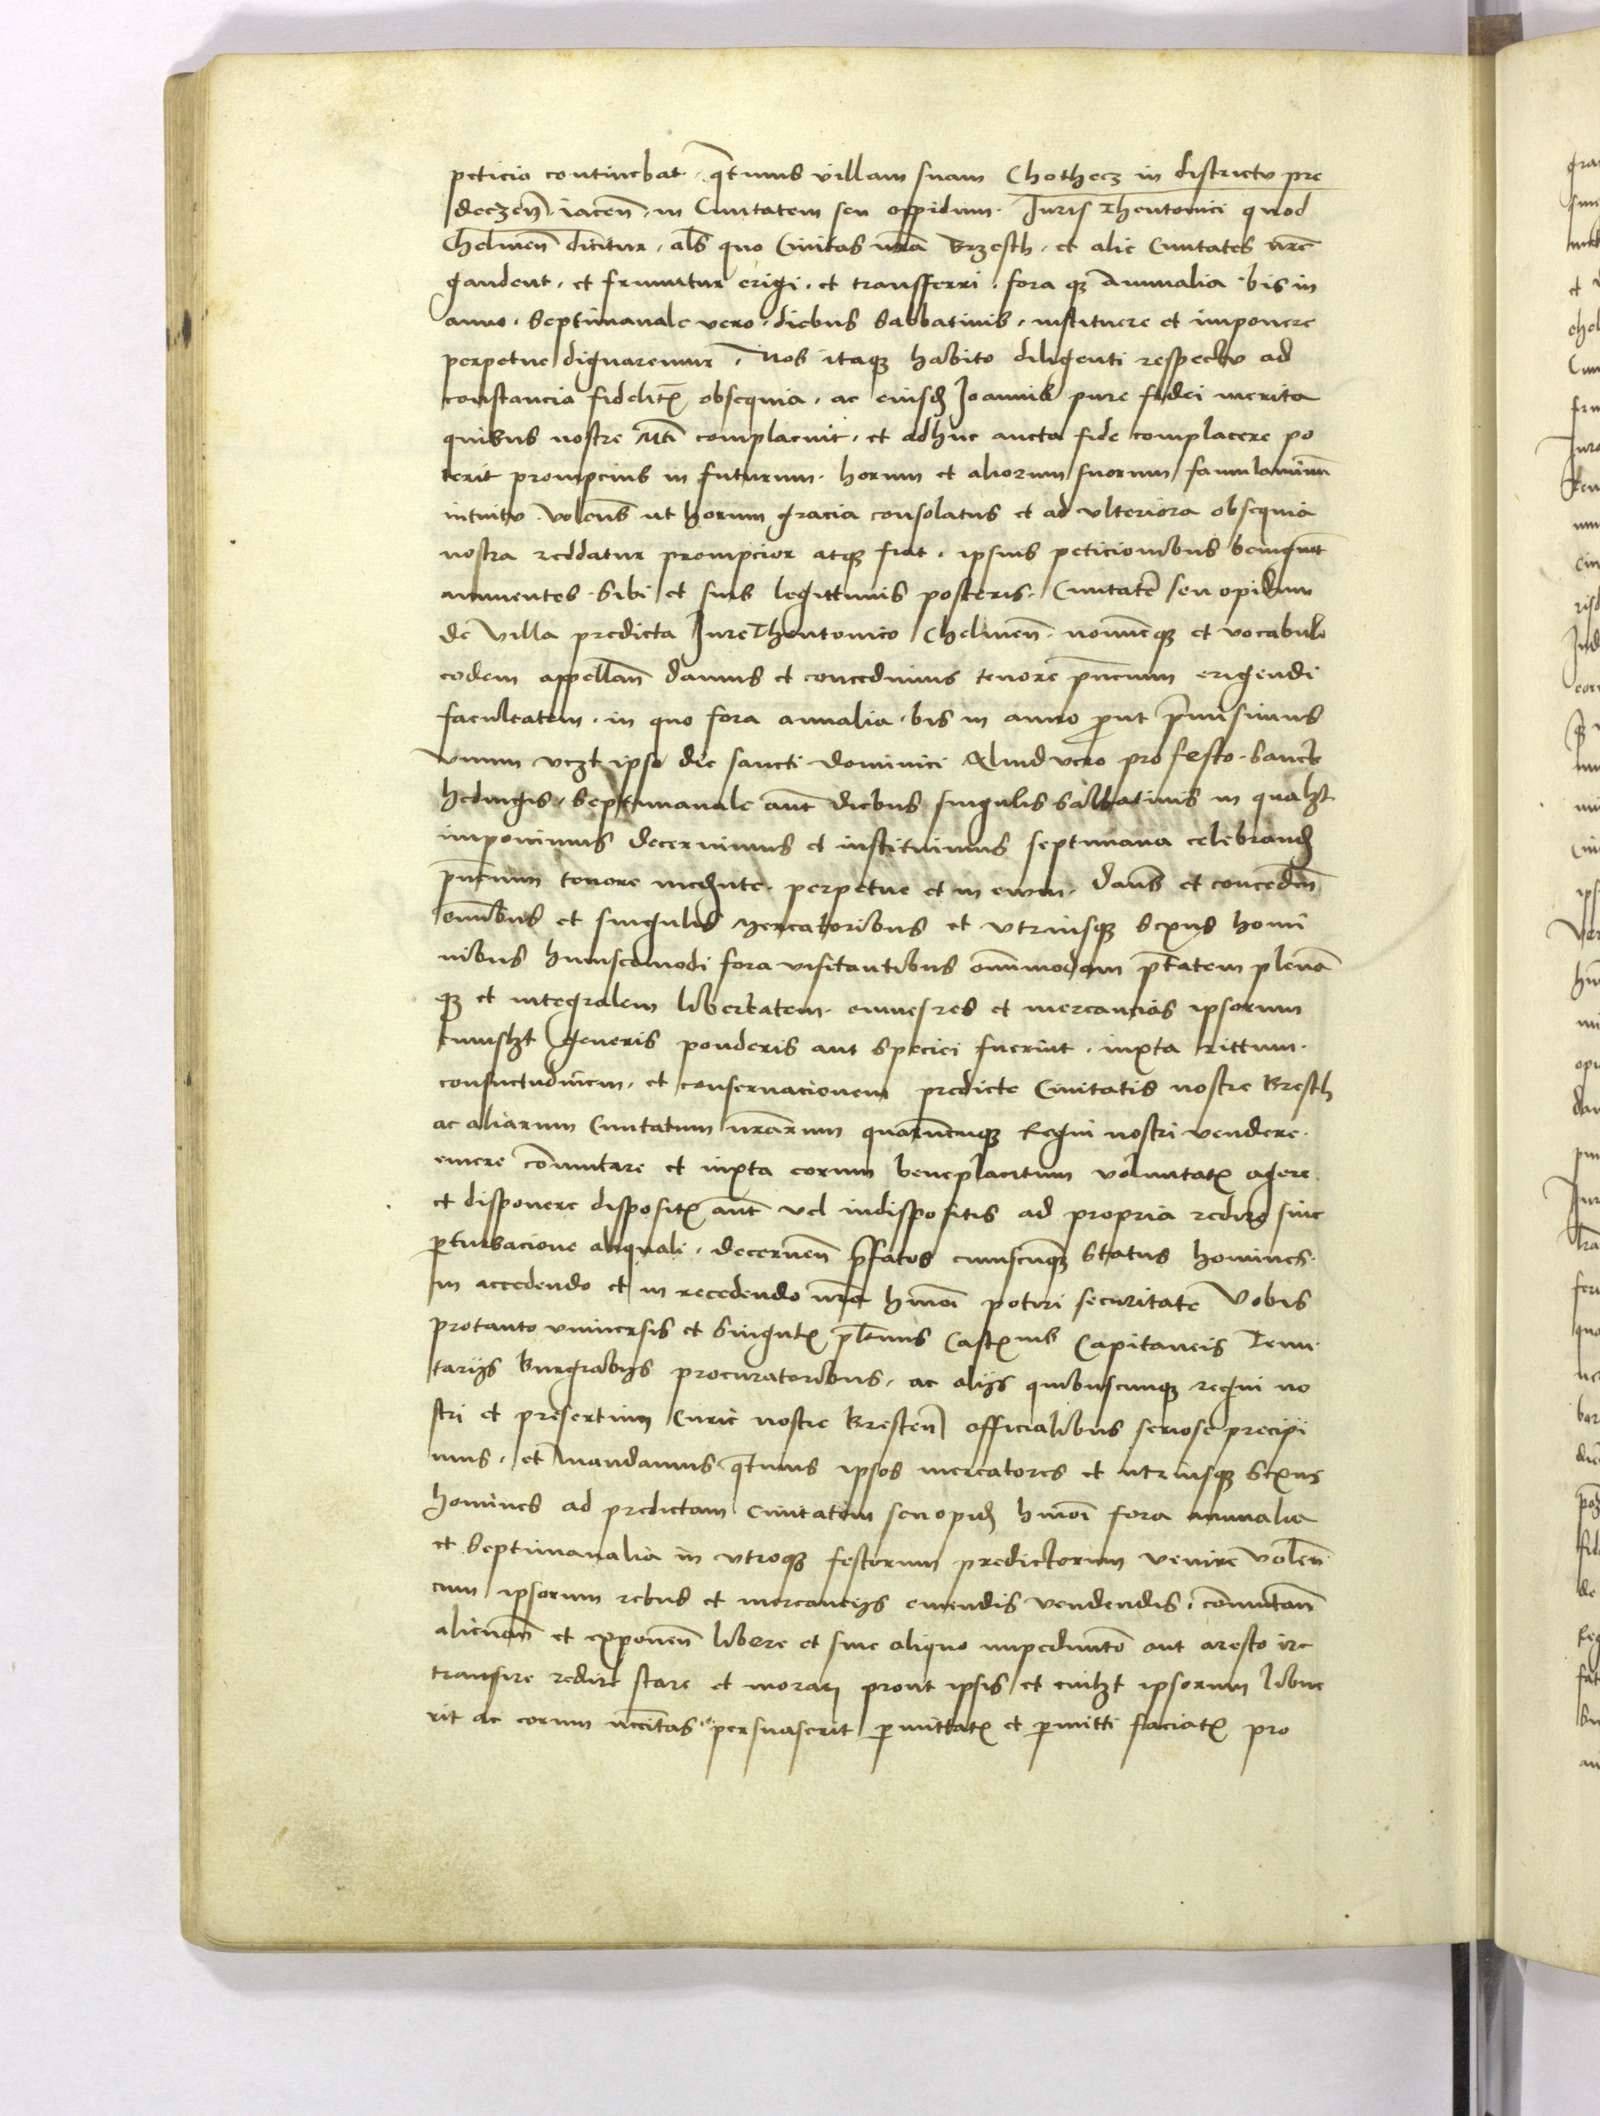 peticio continebat. q̄tenus villam suam Chothecz in districtu pre
deczen̄. iacen̄. in Ciuitatem seu oppidum. Juris Theutonici quod
Chelmen̄ dicitur. al̄s quo Ciuitas nr̄a Brzesth. et alie Ciuitates nr̄e
gaudent. et fruuntur erigi. et transferri. fora qȝ Annualia bis in
anno. Septimanale vero. diebus Sabbatinis. instituere et imponere
perpetue dignaremur. Nos itaqȝ habito diligenti respectu ad
constancia fidelitatis obsequia. ac eiusdē Joannis pure fidei merita
quibus nostre Mti complacuit. et adhuc aucta fide complacere po
terit prompcius in futurum. horum et aliorum suorum famulaminū
intuitu. volens ut horum gracia consolatus et ad vlteriora obsequia
nostra reddatur prompcior atqȝ fiat. ipsius peticionibus benigniter
annuentes. Sibi et suis legittimis posteris. Ciuitatē seu opidum
de Villa predicta Jure Theutonico Chelmen̄. nomineqȝ et vocabulo
eodem appellan̄ damus et concedimus tenore pn̄cium erigendi
facultatem. in quo fora annalia. bis in anno prout p̄misimus
vnum vczt ipso die sancti dominici Aliud vero pro festo. Sancte
hedwigis. Septimanale aut̄ diebus singulis Sabbatinis in qualȝt
imponimus decernimus et instituimus septimana celebrand
pn̄cium tenore mediante. perpetue et in ewm. dan̄s et conceden̄
om̄ibus et singulis Mercatoribus et vtriusqȝ sexus homi
nibus huiuscemodi fora visitantibus om̄imodam ptātem plenā
qȝ et integralem libertatem. omnes res et mercancias ipsorum
cuiusȝt generis ponderis aut speciei fuerint. iuxta rittum.
consuetudinem. et conseruacionem predicte Ciuitatis nostre Bresth
ac aliarum Ciuitatum nr̄arum quarūcunqȝ Regni nostri vendere.
emere cōmutare et iuxta eorum beneplacitum voluntatis agere.
et disponere dispositis aut̄ vel indispositis ad propria redire sine
perturbacione aliquali. decernen̄ p̄fatos cuiuscunqȝ status homines.
in accedendo et in recedendo nr̄a hmōi potiri securitate Vobis
protanto vniuersis et singulis pal̄tinis Castellanis Capitaneis Tenu
tarijs Burgrabijs procuratoribus. ac alijs quibuscunqȝ regni no
stri et presertim Curie nostre Bresten̄ officialibus seriose precipi
mus. et mandamus q̄tenus ipsos mercatores et vtriusqȝ sexus
homines ad predictam ciuitatem seu opid hmōi fora annualia
et septimanalia in vtroqȝ festorum predictorum venire volen̄
cum ipsorum rebus et mercancijs emendis vendendis. cōmutan̄
alienan̄ et exponen̄ libere et sine aliquo impedimēto aut aresto ire
transire redire stare et morari prout ipsis et cuilȝt ipsorum libue
rit ac eorum nccītas persuaserit permittatis et permitti faciatis pro